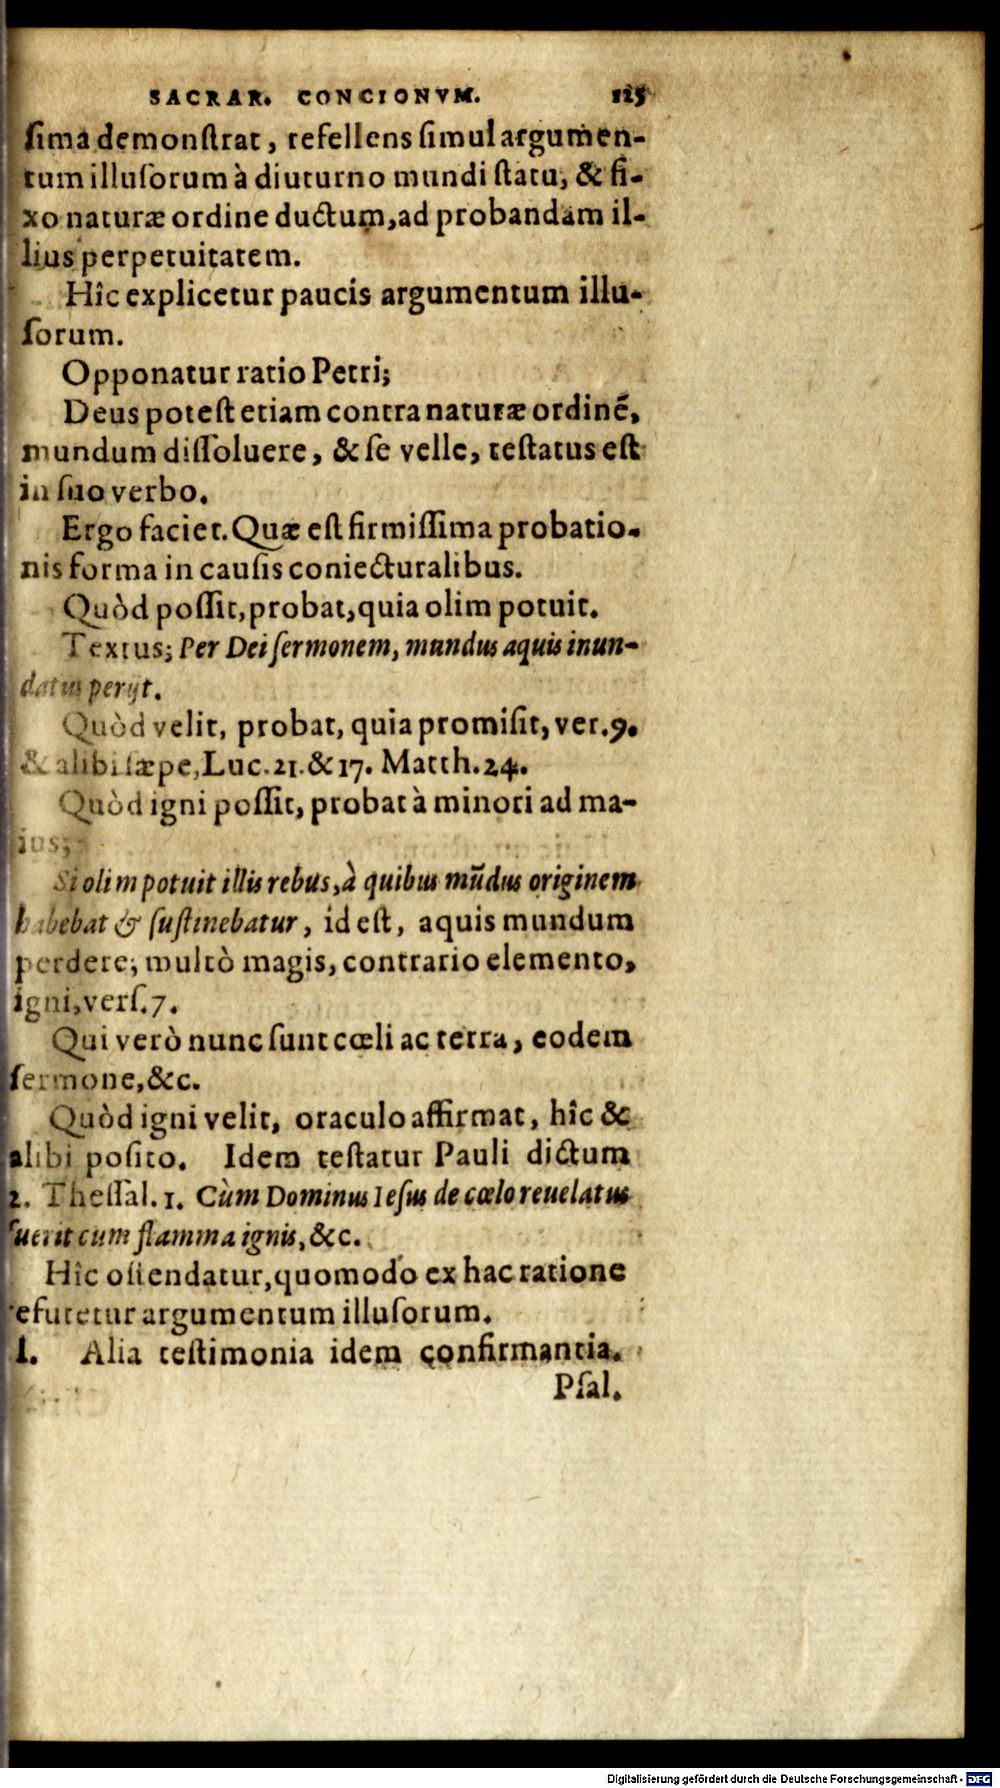 SACRAR. CONCIONVM. 115
sima demonstrat, refellens simul argumen-
tum illusorum à diuturno mundi statu, & fi-
xo naturæ ordine ductum, ad probandam il-
lius perpetuitatem.
Hîc explicetur paucis argumentum illu-
sorum.
Opponatur ratio Petri;
Deus potest etiam contra naturæ ordinẽ,
mundum dissoluere, & se velle, testatus est
in suo verbo.
Ergo faciet. Quæ est firmissima probatio-
nis forma in causis coniecturalibus.
Quòd possit, probat, quia olim potuit.
Textus; Per Dei sermonem, mundus aquis inun-
datus perijt.
Quòd velit, probat, quia promisit, ver.9.
& alibi sæpe, Luc.21.&17. Matth.24.
Quòd igni possit, probat à minori ad ma-
ius;
Si olim potuit illis rebus, à quibus mũdus originem
habebat & sustinebatur, id est, aquis mundum
perdere; multò magis, contrario elemento,
igni, vers.7.
Qui verò nunc sunt cœli ac terra, eodem
sermone, &c.
Quòd igni velit, oraculo affirmat, hîc &
alibi posito. Idem testatur Pauli dictum
2. Thessal. 1. Cùm Dominus Iesus de cœlo reuelatus
fuerit cum flamma ignis, &c.
Hîc ostendatur, quomodo ex hac ratione
refutetur argumentum illusorum.
I. Alia testimonia idem confirmantia.
Psal.
Digitalisierung gefördert durch die Deutsche Forschungsgemeinschaft - DFG